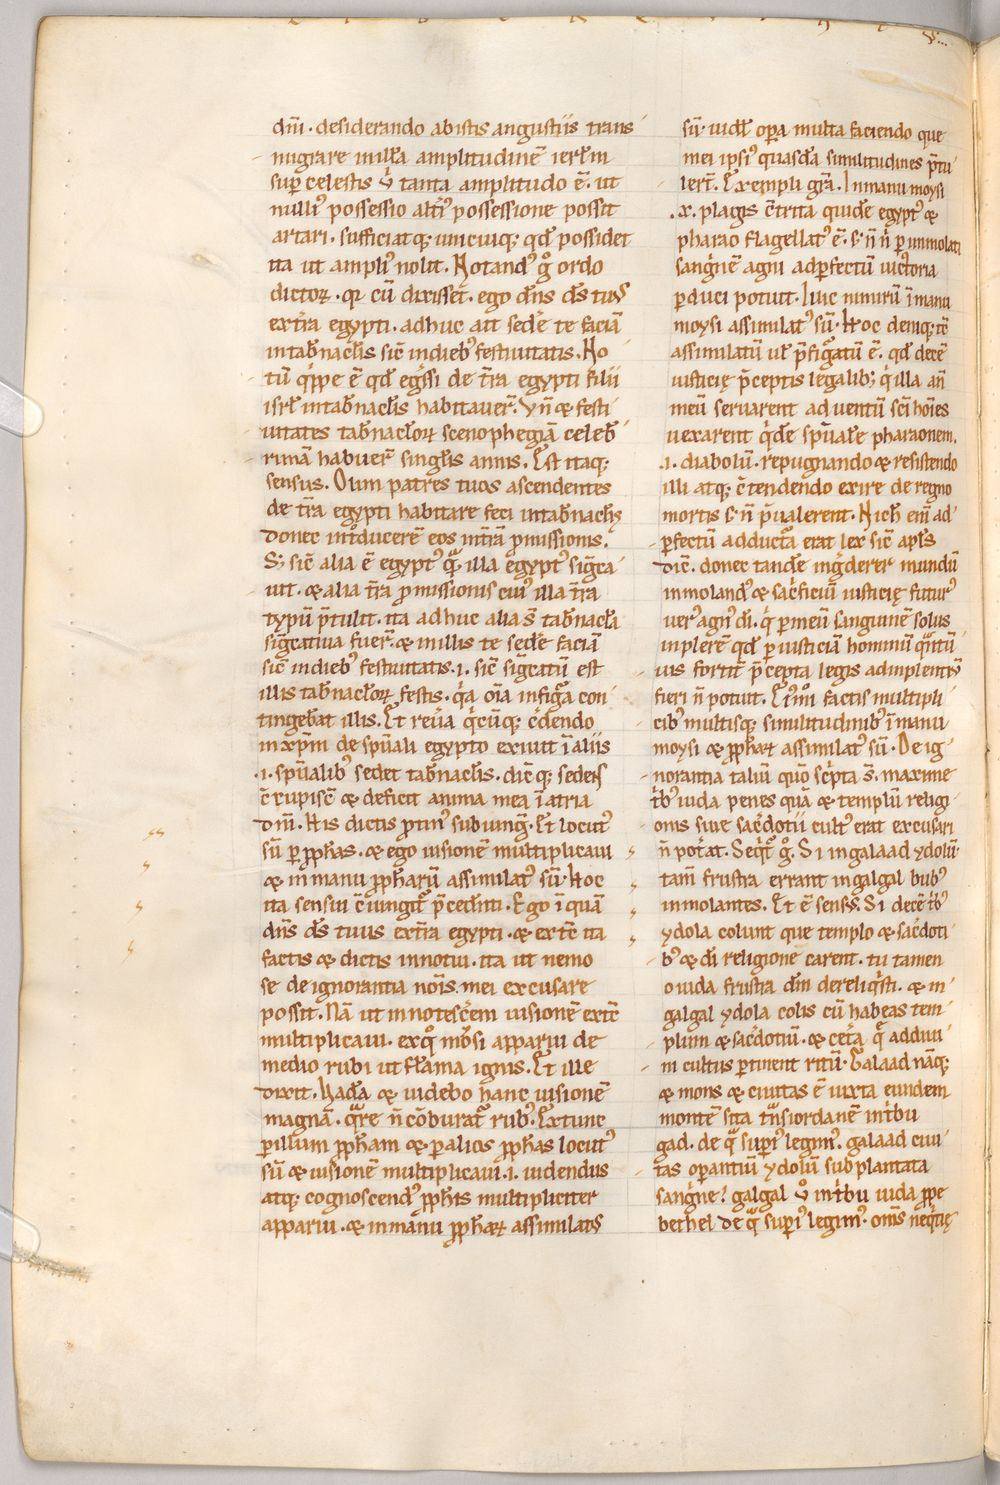 dn̄i · desiderando ab istis angustiis trans
migrare in illā amplitudinē ierl̄m
sup celestis ů tanta amplitudo ē. ut
nulliꝰ possessio altiꝰ possessione possit
artari · sufficiatq; unicuiq; qd̄ possidet
ita ut ampliꝰ nolit. Notandꝰ g̊ ordo
dictoꝝ · qr cū dixisset · ego dn̄s ds̄ tuus
ex tr̄a egypti · adhuc ait sedē te faciā
in tab̄nacl̄is sic̄ in diebꝰ festiuitatis. No
tū q̄ppe ē qd̄ eg̃ssi de tr̄a egypti filii
isrl̄ in tab̄nacl̄is habitauer̄. Vn̄ ⁊ festi
uitates tab̄nacl̄oꝝ scenophegiā celeb
rimā habuer̄ singl̄is annis. Est itaq;
sensus. Dum patres tuos ascendentes
de tr̄a egypti habitare feci in tab̄nacl̄is
donec int̊ducerē eos in tr̄ā ꝓmissionis.
S; sic̄ alia ē egyptꝰ qͣ̄ illa egyptꝰ sig̃ca
uit. ⁊ alia tr̄a ꝓmissionis cuiꝰ illa tr̄a
typū p̄tulit. ita adhuc alia s̄ tab̄nacl̄a
sig̃catiua fuer̄. ⁊ in illis te sedē faciā
sic̄ in diebꝰ festiuitatis .i. sic̄ sig̃catū est
illis tab̄nacl̄oꝝ festis. qͥa om̄ia in figͣ̄a con
tingebat illis. Et reuͣa qͥcūq; c̄dendo
in xp̄m de sp̄uali egypto exiuit ī aliis
.i. sp̄ualibꝰ sedet tab̄nacl̄is. dic̄q; sedens
c̄cupisc̄ ⁊ deficit anima mea ī atria
dn̄i. His dictis ꝓtinꝰ subiungͥ̄. Et locutꝰ
sū per ꝓph̄as. ⁊ ego uisionē multiplicaui
⁊ in manu ꝓph̄arū assimilatꝰ sū. Hoc
ita sensui c̄iungit̄ p̄cedēti. Ego īquā
dn̄s ds̄ tuus ex tr̄a egypti. ⁊ ex tc̄ ita
factis ⁊ dictis innotui. ita ut nemo
se de ignorantia noīs mei excusare
possit. Nā ut innotescērem uisionē ex tc̄
multiplicaui. ex qͦ moẙsi apparui de
medio rubi ut flāma ignis. Et ille
dixit. Vadā ⁊ uidebo hanc uisionē
magnā. qͣre n̄ cōburat̄ rubꝰ. Ex tunc
ꝑ illum ꝓph̄am ⁊ ꝑ alios ꝓph̄as locutꝰ
sū ⁊ uisionē multiplicaui .i. uidendus
atq; cognoscendꝰ ꝓph̄is multipliciter
apparui. ⁊ in manu ꝓph̄aꝝ assimilatus
sū. uidl̄ opa multa faciendo que
mei ipsiꝰ quasdā similitudines p̄tu
lert̄. Exempli gr̄a. In manu moysi
.x. plagis c̄trita quidē egyptꝰ ⁊
pharao flagellatꝰ ē. s; n̄ n̄ ꝑ immolati
sangͥnē agni ad ꝑfectū uictoria
ꝑduci potuit. Huic nimirū ī manu
moysi assimilatꝰ sū. Hoc deniq; tc̄
assimilatū ul̄ p̄figͣ̄atū ē. qd̄ decē
iusticię p̄ceptis legalib; qͥ illa an̄
meū seruarent aduentū sc̄i hoīes
uexarent qͥdē sp̄ualē pharaonem.
.i. diabolū. repugnando ⁊ resistendo
illi atq; c̄tendendo exire de regno
mortis s; n̄ p̄ualerent. Nichͥ eni ad
ꝑfectū adductͣ̄ erat lex sic̄ apl̄s
dic̄. donec tandē ing̃derer mundū
inmolandꝰ ⁊ sacͥficiū iusticię futurꝰ
uerꝰ agnꝰ dī. qͥ ꝑ meū sanguinē solus
implerē qd̄ ꝑ iusticiā hominū qͣntū
uis fortit̄ p̄cepta legis adimplentiū
fieri n̄ potuit. Ei̊ mo᷒i factis multipli
cibꝰ multisq; similitudinibꝰ ī manu
moysi ⁊ ꝓph̄aꝝ assimilatꝰ sū. De ig
norantia taliū quō sc̄pta s̄. maxime
tͥbꝰ iuda penes quā ⁊ templū religi
onis siue sac̄dotii cultꝰ erat excusari
n̄ poterat. Seqͥt̄ g̊. Si in galaad ydolū
tam̄ frustra errant in galgal bubꝰ
inmolantes. Et ē sensꝰ. Si decē tͥbꝰ
ydola colunt que templo ⁊ sac̄doti
bꝰ ⁊ dī religione carent. tu tamen
o iuda frustra dm̄ dereliqͥsti. ⁊ in
galgal ydola colis cū habeas tem
plum ⁊ sac̄dotiū. ⁊ cetera qͣ̄ ad diui
ni cultus ꝑtinent ritū. Galaad nāq;
⁊ mons ⁊ ciuitas ē iuxta eundem
montē sita tͣns iordanē in tͥbu
gad. de qͣ supiꝰ legimꝰ. galaad ciui
tas oꝑantiū ydolū subplantata
sangͥne. galgal ů in tͥbu iuda ꝓpe
bethel de qͣ̄ supiꝰ legimꝰ. om̄s neqͥtię